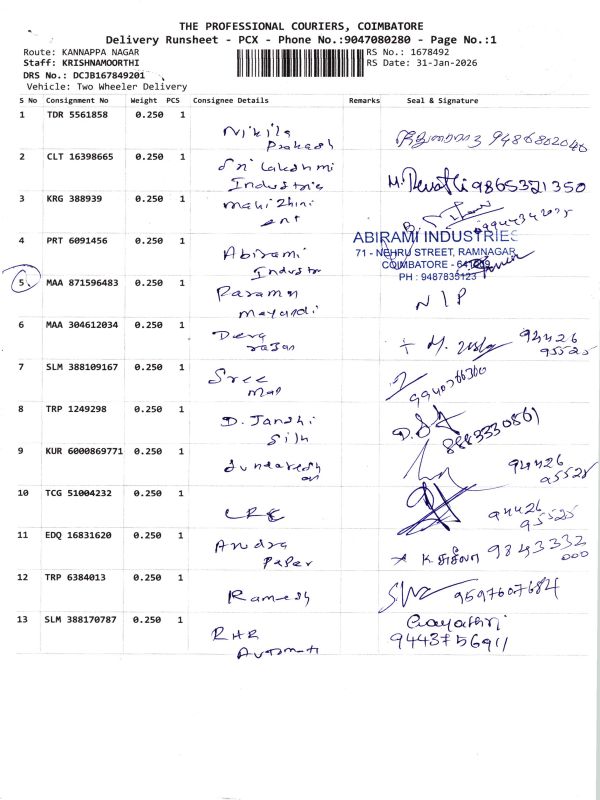 THE PROFESSIONAL COURIERS, COIMBATORE
Delivery Runsheet - PCX - Phone No.:9047080280 - Page No.:1
Route: KANNAPPA NAGAR
RS No.: 1678492
Staff: KRISHNAMOORTHI
RS Date: 31-Jan-2026
DRS No.: DCJB167849201
Vehicle: Two Wheeler Delivery
S No Consignment No Weight PCS Consignee Details Remarks Seal & Signature
1 TDR 5561858 0.250 1
Nikila
Prakash 9486802040
2 CLT 16398665 0.250 1
Sri Lakshmi
Industries M. Revathi 9865321350
3 KRG 388939 0.250 1
Mahizhini
ent
4 PRT 6091456 0.250 1
ABIRAMI INDUSTRIES
71 - NEHRU STREET, RAMNAGAR
COIMBATORE - 641009
PH : 9487835123
Abirami
Industr
5 MAA 871596483 0.250 1
Paraman
Mayandi N/P
6 MAA 304612034 0.250 1
Deva
rajan 94426
95525
7 SLM 388109167 0.250 1
Sree
Mal 9940766300
8 TRP 1249298 0.250 1
D. Janshi
Silk 8883330861
9 KUR 6000869771 0.250 1
Sundaresh
an 94426
95525
10 TCG 51004232 0.250 1
CRE 94426
95525
11 EDQ 16831620 0.250 1
Andra
Paper K சுசீலா 9843332
000
12 TRP 6384013 0.250 1
Ramesh 9597607684
13 SLM 388170787 0.250 1
RHR
Automati
Gayathri
9443756911